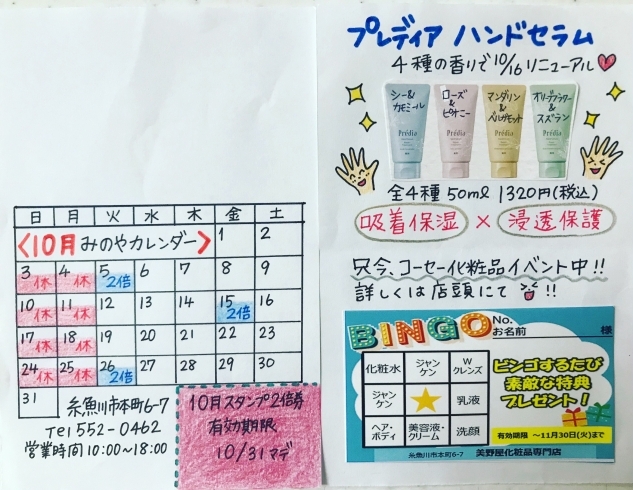 日 月 火 水 木 金 土
<10月 みのやカレンダー> 1 2
3休 4休 5 2倍 6 7 8 9
10休 11休 12 13 14 15 2倍 16
17休 18休 19 20 21 22 23
24休 25休 26 2倍 27 28 29 30
31
糸魚川市本町6-7
Tel 552-0462
営業時間10:00~18:00
10月スタンプ2倍券
有効期限
10/31マデ
プレディア ハンドセラム
4種の香りで10/16リニューアル
シー&カモミール
ローズ&ピオニー
マンダリン&ベルガモット
オリーブフラワー&スズラン
Prédia
Prédia
Prédia
Prédia
全4種 50ml 1320円(税込)
吸着保湿 × 浸透保護
只今、コーセー化粧品イベント中!!
詳しくは店頭にて !!
BINGO
No.
お名前 様
化粧水 ジャンケン Wクレンズ
ジャンケン 乳液
ヘア・ボディ 美容液・クリーム 洗顔
ビンゴするたび
素敵な特典
プレゼント!
有効期限 ~11月30日(火)まで
糸魚川市本町6-7 美野屋化粧品専門店